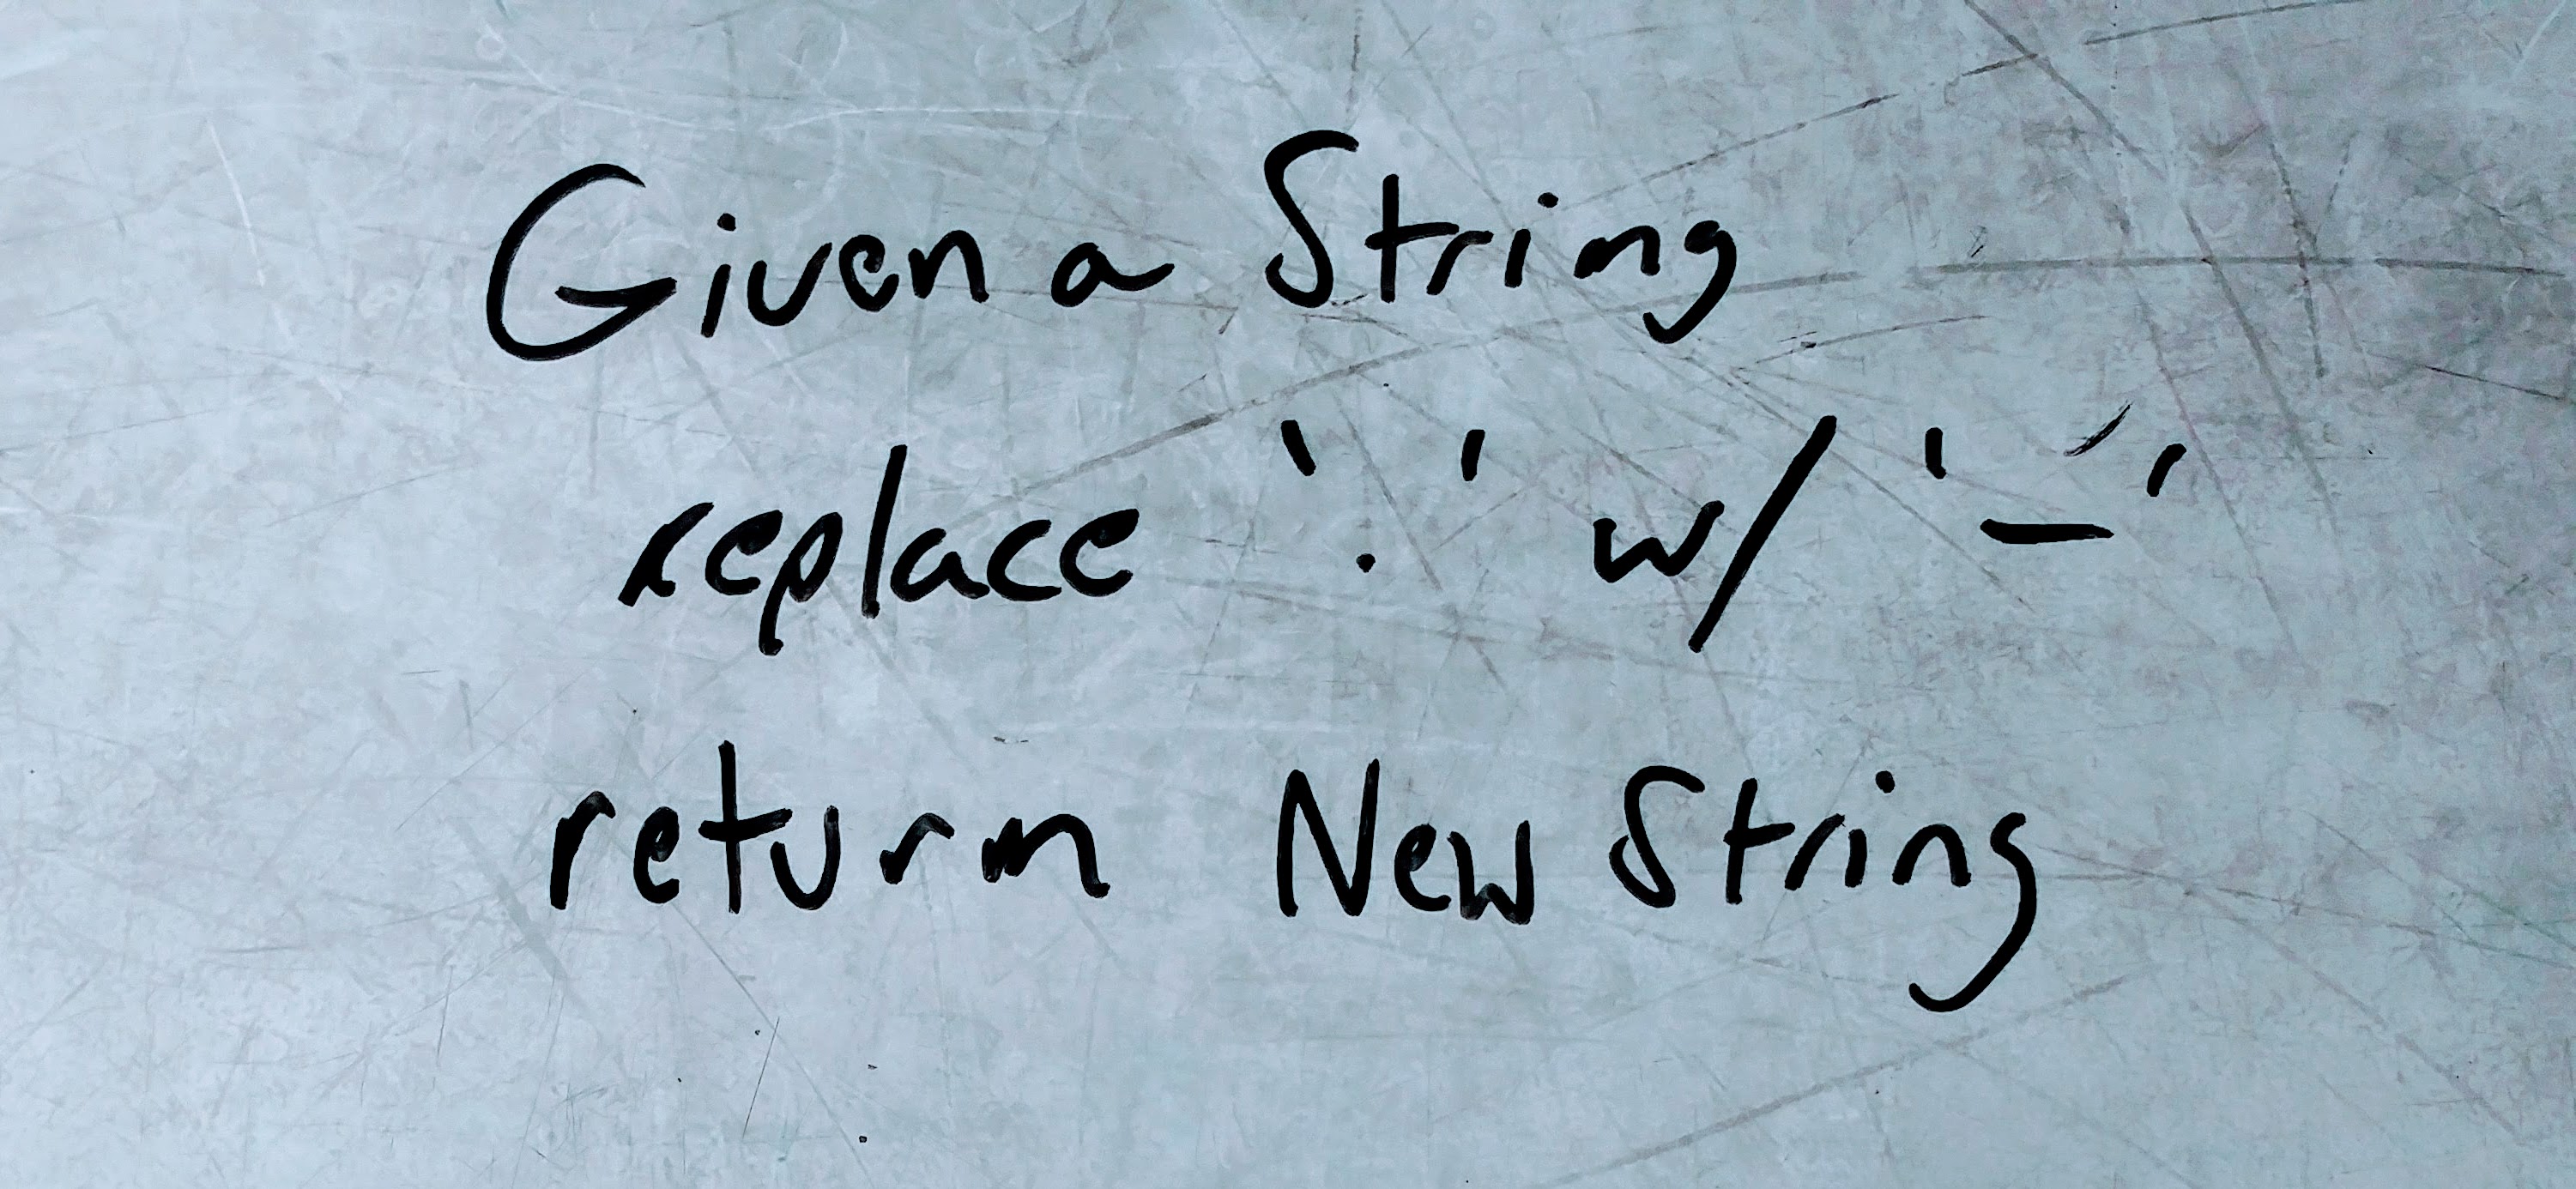 Given a String
replace '.' w/ '-'
return New String